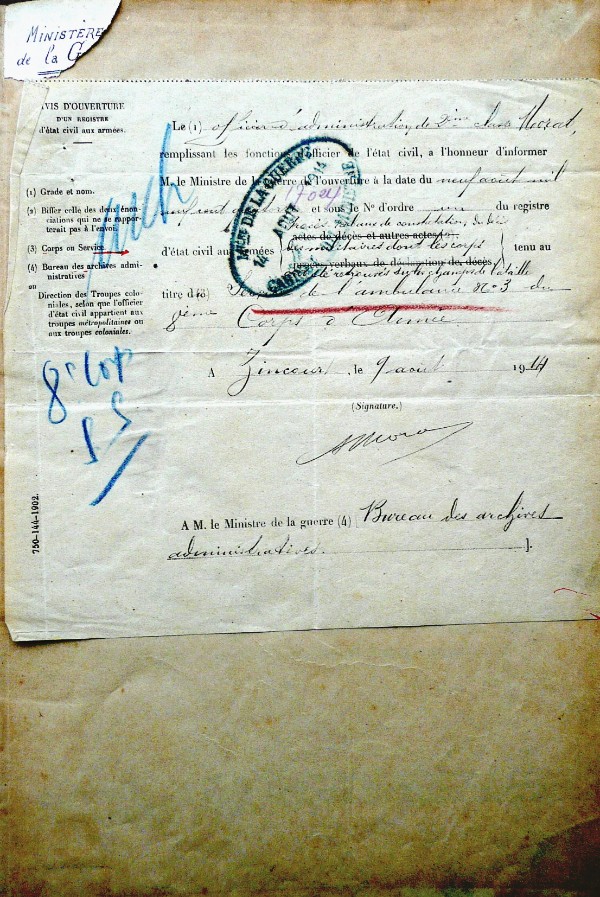 MINISTÈRE
de la G
AVIS D'OUVERTURE
D'UN REGISTRE
d'état civil aux armées.
(1) Grade et nom.
(2) Biffer celle des deux énonciations qui ne se rapporterait pas à l'envoi.
(3) Corps ou Service
(4) Bureau des archives administratives
ou
Direction des Troupes coloniales, selon que l'officier d'état civil appartient aux troupes métropolitaines ou aux troupes coloniales.
8e Corp
750-144-1902.
Le (1) officier d'administration de 2ème classe
remplissant les fonctions d'officier de l'état civil, a l'honneur d'informer
M. le Ministre de la guerre de l'ouverture à la date du neuf août mil
neuf cent et sous le No d'ordre un du registre
procès verbaux de constatation, de décès
actes de décès et autres actes
d'état civil aux armées des militaires dont les corps tenu au
procès-verbaux de déclaration de décès
été retrouvés sur les champs de bataille
titre d(3) de l'ambulance No 3 du
8ème Corps d'Armée
Mre DE LA GUERRE
14 AOUT 1914
A Zincourt, le 9 août 1914
(Signature.)
A M. le Ministre de la guerre (4) Bureau des archives
administratives. ].